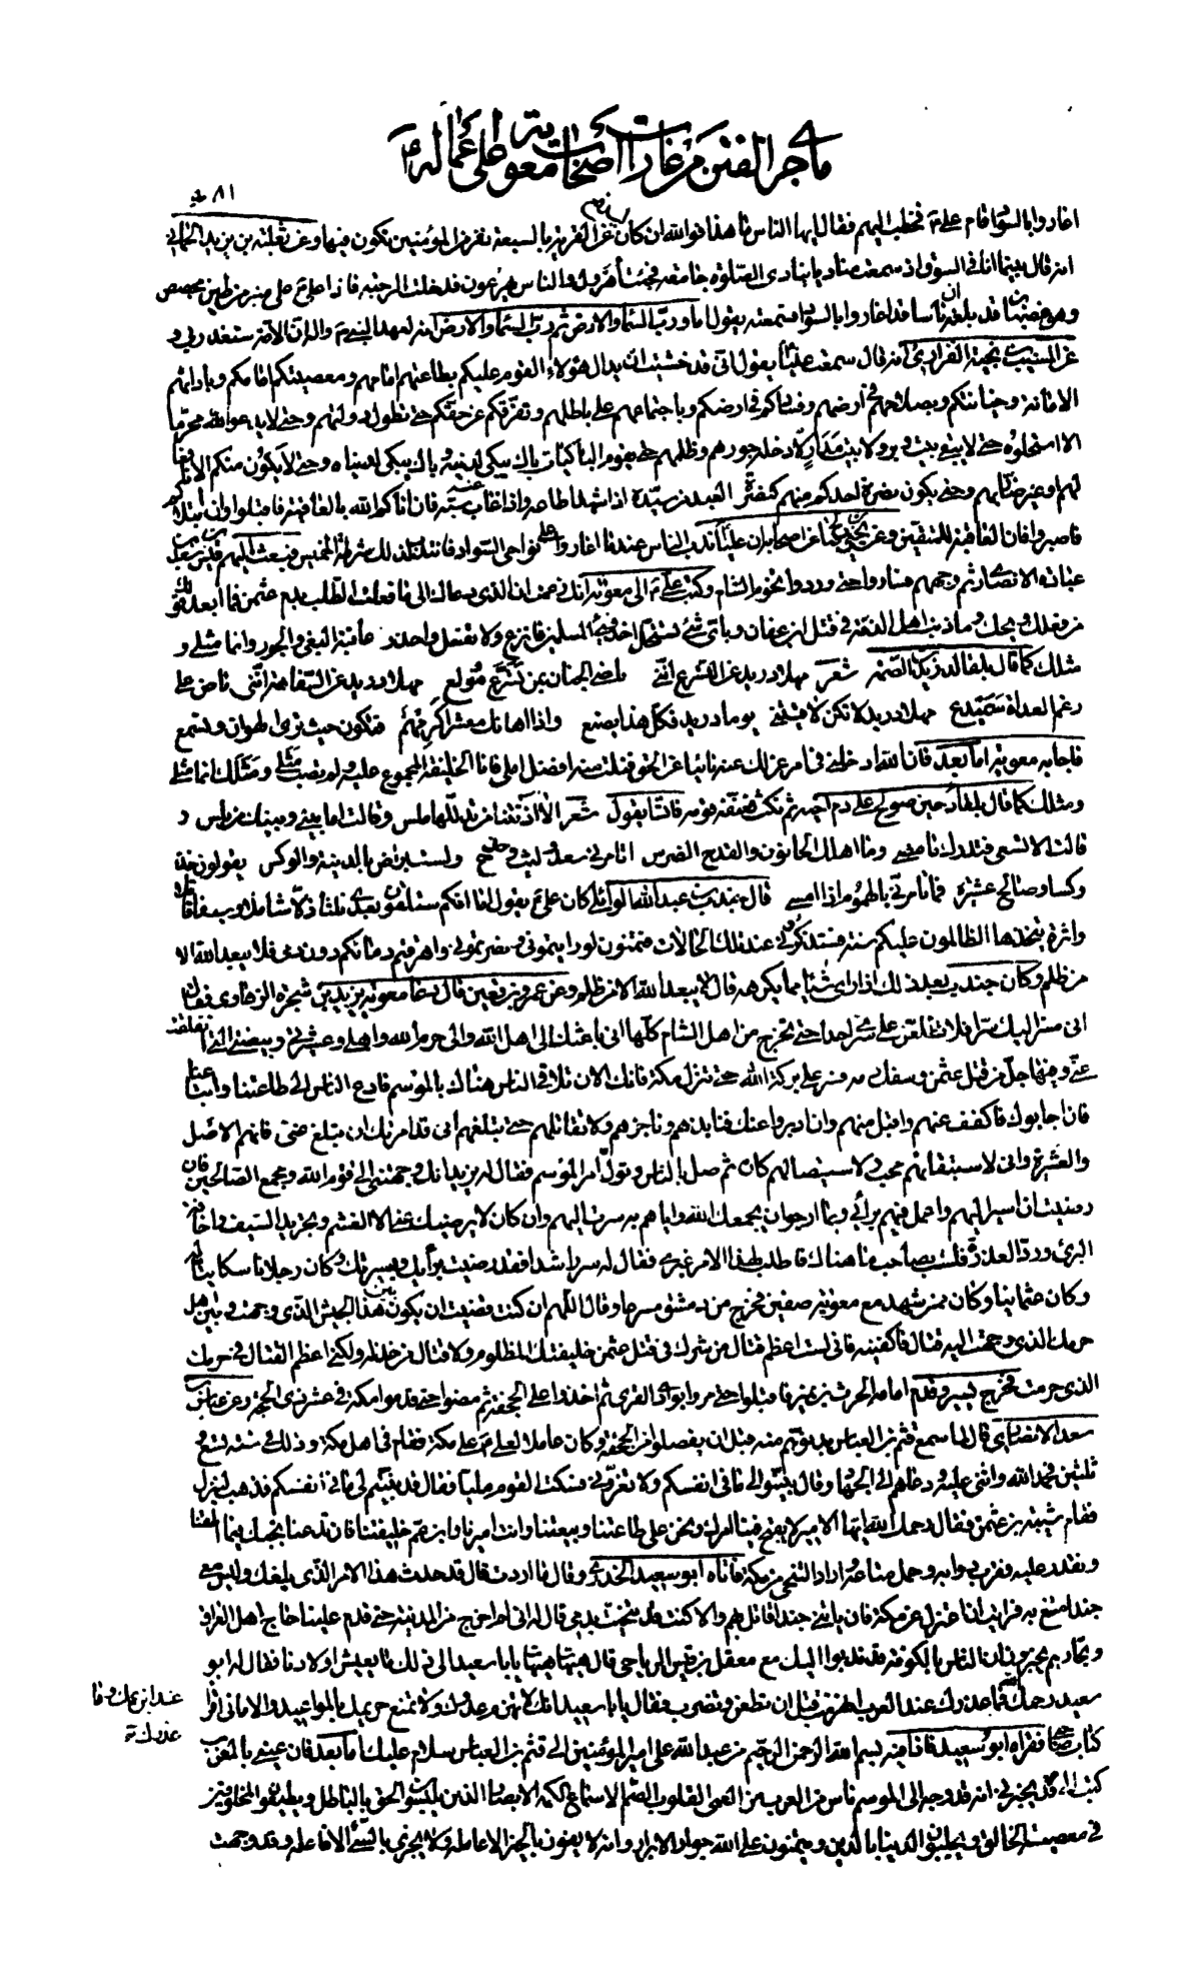 ما جرى الفتن من غارات اصحاب معوية على عماله ع
اغاروا بالسواد قام علي ع فخطب اليهم فقال ايها الناس ما هذا فوالله ان كان عن القرية بالسبعة نفر من المؤمنين تكون فيها وعن ثعلبة بن يزيد الحماني
انه قال بينما انا في السوق اذ سمعت مناديا ينادي الصلوة جامعة فجئت اهرول والناس يهرعون فدخلت الرحبة فاذا علي ع على منبر من طين مجصص
وهو غضبان قد بلغه ان ناسا قد اغاروا بالسواد فسمعته يقول اما ورب السماء والارض ثم رب السماء والارض انه لعهد النبي ص والي ان الامة ستغدر بي و
عن المسيب بن نجبة الفزاري انه قال سمعت عليا يقول اني قد خشيت ان يدال هؤلاء القوم عليكم بطاعتهم امامهم ومعصيتكم امامكم وبادائهم
الامانة وخيانتكم وبصلاحهم في ارضهم وفسادكم في ارضكم وباجتماعهم على باطلهم وتفرقكم عن حقكم حتى تطول دولتهم وحتى لا يدعوا لله محرما
الا استحلوه حتى لا يبقى بيت وبر ولا بيت مدر الا دخله جورهم وظلمهم حتى يقوم الباكيان باك يبكي لدينه وباك يبكي لدنياه وحتى لا يكون منكم الا نافعا
لهم او غير ضار بهم وحتى يكون نصرة احدكم منهم كنصرة العبد من سيده اذا شهد اطاعه واذا غاب عنه سبه فان اتاكم الله بالعافية فاقبلوا وان ابتلاكم
فاصبروا فان العاقبة للمتقين وعن يحيى بن صالح عن اصحابه ان عليا ندب الناس عندما اغاروا على نواحي السواد فانتدب لذلك شرطة الخميس فبعث اليهم قيس بن سعد بن
عبادة الانصاري ثم وجههم فساروا حتى وردوا تخوم الشام وكتب علي ع الى معوية انك زعمت ان الذي دعاك الى ما فعلت الطلب بدم عثمن فما ابعد قولك
من فعلك ويحك وما ذنب اهل الذمة في قتل ابن عفان وباي شئ تستحل اخذ فئ المسلمين فانزع ولا تفعل واحذر عاقبة البغي والجور وانما مثلي و
مثلك كما قال بلعاء لدريد بن الصمة شعر مهلا دريد عن التسرع انني ماضي الجنان بمن تسرع مولع مهلا دريد عن السفاهة انني ماض على
رغم العداة سميدع مهلا دريد لا تكن لاقيتني يوما دريد فكل هذا يصنع واذا اهانك معشر اكرمهم فتكون حيث ترى الهوان وتسمع
فاجابه معوية اما بعد فان الله ادخلني في امر عزلك عنه نائيا عن الحق فنلت منه افضل املي فانا الخليفة المجموع عليه ولم تصب مثلي ومثلك انما مثلي
ومثلك كما قال بلعاء حين صولح على دم اخيه ثم نكث فعنفه قومه فانشا يقول شعر الا اذنتنا من تدللها ملس وقالت اما بيني وبينك من بلس و
قالت الا تسعى فتدرك ما مضى وما اهلك الحانوت والقدح الضرس اتامرني سعد وليث وجندع ولست براض بالدنية والوكس يقولون خذ
وكسا وصالح عشيرة فما تامرني بالهموم اذا امسي قال جندب بن عبد الله الوائلي كان علي ع يقول اما انكم ستلقون بعدي ثلثا ذلا شاملا وسيفا قاتلا
واثرة يتخذها الظالمون عليكم سنة فستذكروني عند تلك الحالات فتتمنون لو رايتموني فنصرتموني واهرقتم دماءكم دون دمي فلا يبعد الله الا
من ظلم وكان جندب بعد ذلك اذا رأى شيئا مما يكرهه قال لا يبعد الله الا من ظلم وعن عمرو بن قعين قال دعا معوية يزيد بن شجرة الرهاوي فقال
اني مسر اليك سرا فلا تطلعن على سري احدا حتى تخرج من اهل الشام كلها اني باعثك الى اهل الله والى حرم الله واهلي وعشيرتي وبيضتي التي انفلقت
عني وفيها جل من قتل عثمن وسفك دمه فسر على بركة الله حتى تنزل مكة فانك الان تلاقي الناس هناك بالموسم فادع الناس الى طاعتنا واتباعنا
فان اجابوك فاكفف عنهم واقبل منهم وان ادبروا عنك فنابذهم وناجزهم ولا تقاتلهم حتى تبلغهم اني قد امرتك ان تبلغ عني فانهم الاصل
والعشيرة واني لاستبقائهم محب ولاستيصالهم كاره ثم صل بالناس وتول امر الموسم فقال له يزيد انك وجهتني الى قوم الله ومجمع الصالحين فان
رضيت ان اسير اليهم واعمل فيهم برائي وبما ارجو ان يجمعك الله واياهم به سرت اليهم وان كان لا يرضيك عني الا الغشم وتجريد السيف واخافة
البرئ ورد العذرة فلست بصاحب ما هناك فاطلب لهذا الامر غيري فقال له سر راشدا فقد رضيت برأيك وبسيرتك وكان رجلا ناسكا يتاله
وكان عثمانيا وكان ممن شهد مع معوية صفين فخرج من دمشق مسرعا وقال اللهم ان كنت قضيت ان يكون بين هذا الجيش الذي وجهت وبين اهل
حرمك الذي وجهت اليه قتال فاكفنيه فاني لست اعظم قتال من شرك في قتل عثمن خليفتك المظلوم ولا قتال من خذله ولكني اعظم القتال في حرمك
الذي حرمت فخرج يسير وقدم امامه الحرث بن نمير فاقبلوا حتى مروا بوادي القرى ثم اخذوا على الجحفة ثم مضوا حتى قدموا مكة في عشر ذي الحجة وعن عباس بن
سعد الانصاري قال لما سمع قثم بن العباس بدنوهم منه قبل ان يفصلوا من الجحفة وكان عاملا لعلي ع على مكة فقام في اهل مكة وذلك في سنة تسع و
ثلثين فحمد الله واثنى عليه ودعاهم الى الجهاد وقال بينوا لي ما في انفسكم ولا تغروني فسكت القوم مليا فقال قد بينتم لي ما في انفسكم فذهب لينزل
فقام شيبة بن عثمن فقال رحمك الله ايها الامير لا يقبح فينا امرك ونحن على طاعتنا وبيعتنا وانت اميرنا وابن عم خليفتنا فان تدعنا نجبك فيما اطقنا
ونقدر عليه فقرب دوابه وحمل متاعه واراد التنحي من مكة فاتاه ابو سعيد الخدري وقال ما اردت قال قد حدث هذا الامر الذي بلغك وليس معي
جند امتنع به فرايت ان اعتزل عن مكة فان ياتني جند اقاتل بهم والا كنت قد تنحيت بدمي قال له اني لم اخرج من المدينة حتى قدم علينا حاج اهل العراق
وتجارهم يخبرون ان الناس بالكوفة قد ندبوا اليك مع معقل بن قيس الرياحي قال هيهات هيهات يابا سعيد الى ذلك ما يعيش اولادنا فقال له ابو
سعيد رحمك الله فما عذرك عند العرب انهزمت قبل ان تطعن وتضرب فقال يابا سعيد انك لا تهزم عدوك ولا تمنع حريمك بالمواعيد والاماني اقرا
عند ابن عمك وما
عذرك
كتاب صاحبي فقراه ابو سعيد فاذا فيه بسم الله الرحمن الرحيم من عبد الله علي امير المؤمنين الى قثم بن العباس سلام عليك اما بعد فان عيني بالمغرب
كتب الي يخبرني انه قد وجه الى الموسم ناس من العرب من العمي القلوب الصم الاسماع الكمه الابصار الذين يلبسون الحق بالباطل ويطيعون المخلوقين
في معصية الخالق ويجلبون الدنيا بالدين ويتمنون على الله جوار الابرار وانه لا يفوز بالخير الا عامله ولا يجزي بالسئ الا فاعله وقد وجهت